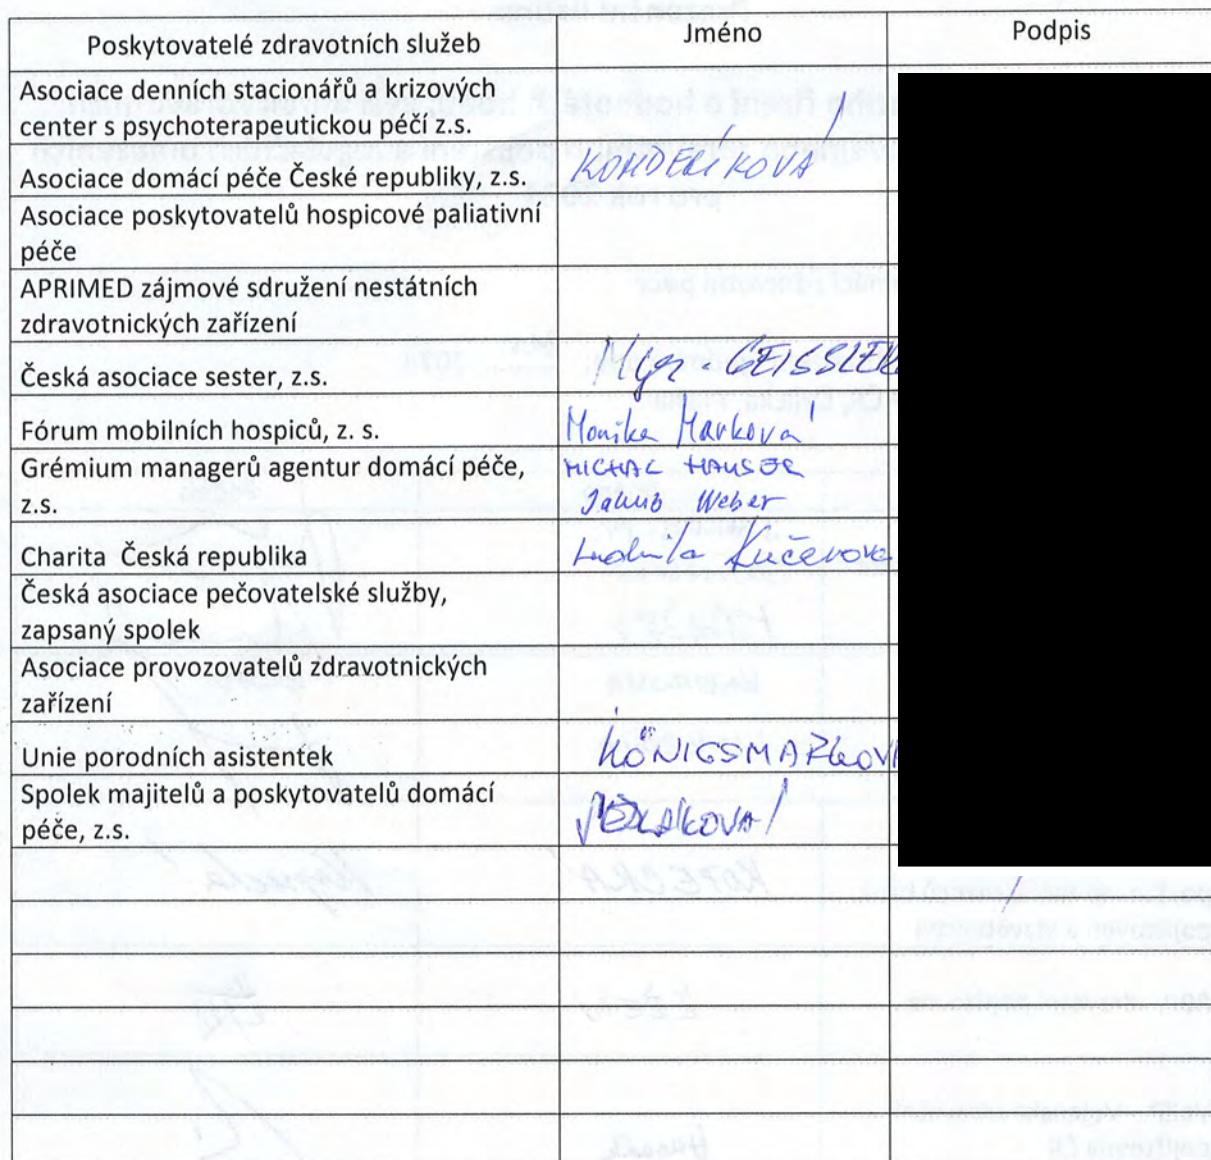 Poskytovatelé zdravotních služeb Jméno Podpis
Asociace denních stacionářů a krizových
center s psychoterapeutickou péčí z.s.
Asociace domácí péče České republiky, z.s.
Asociace poskytovatelů hospicové paliativní
péče
APRIMED zájmové sdružení nestátních
zdravotnických zařízení
Česká asociace sester, z.s. Mgr. GEISSLER
Fórum mobilních hospiců, z. s. Monika Marková
Grémium managerů agentur domácí péče, MICHAL HAUSER
z.s. Jakub Weber
Charita Česká republika Ludmila Kučerova
Česká asociace pečovatelské služby,
zapsaný spolek
Asociace provozovatelů zdravotnických
zařízení
Unie porodních asistentek KÖNIGSMARKOVÁ
Spolek majitelů a poskytovatelů domácí
péče, z.s.